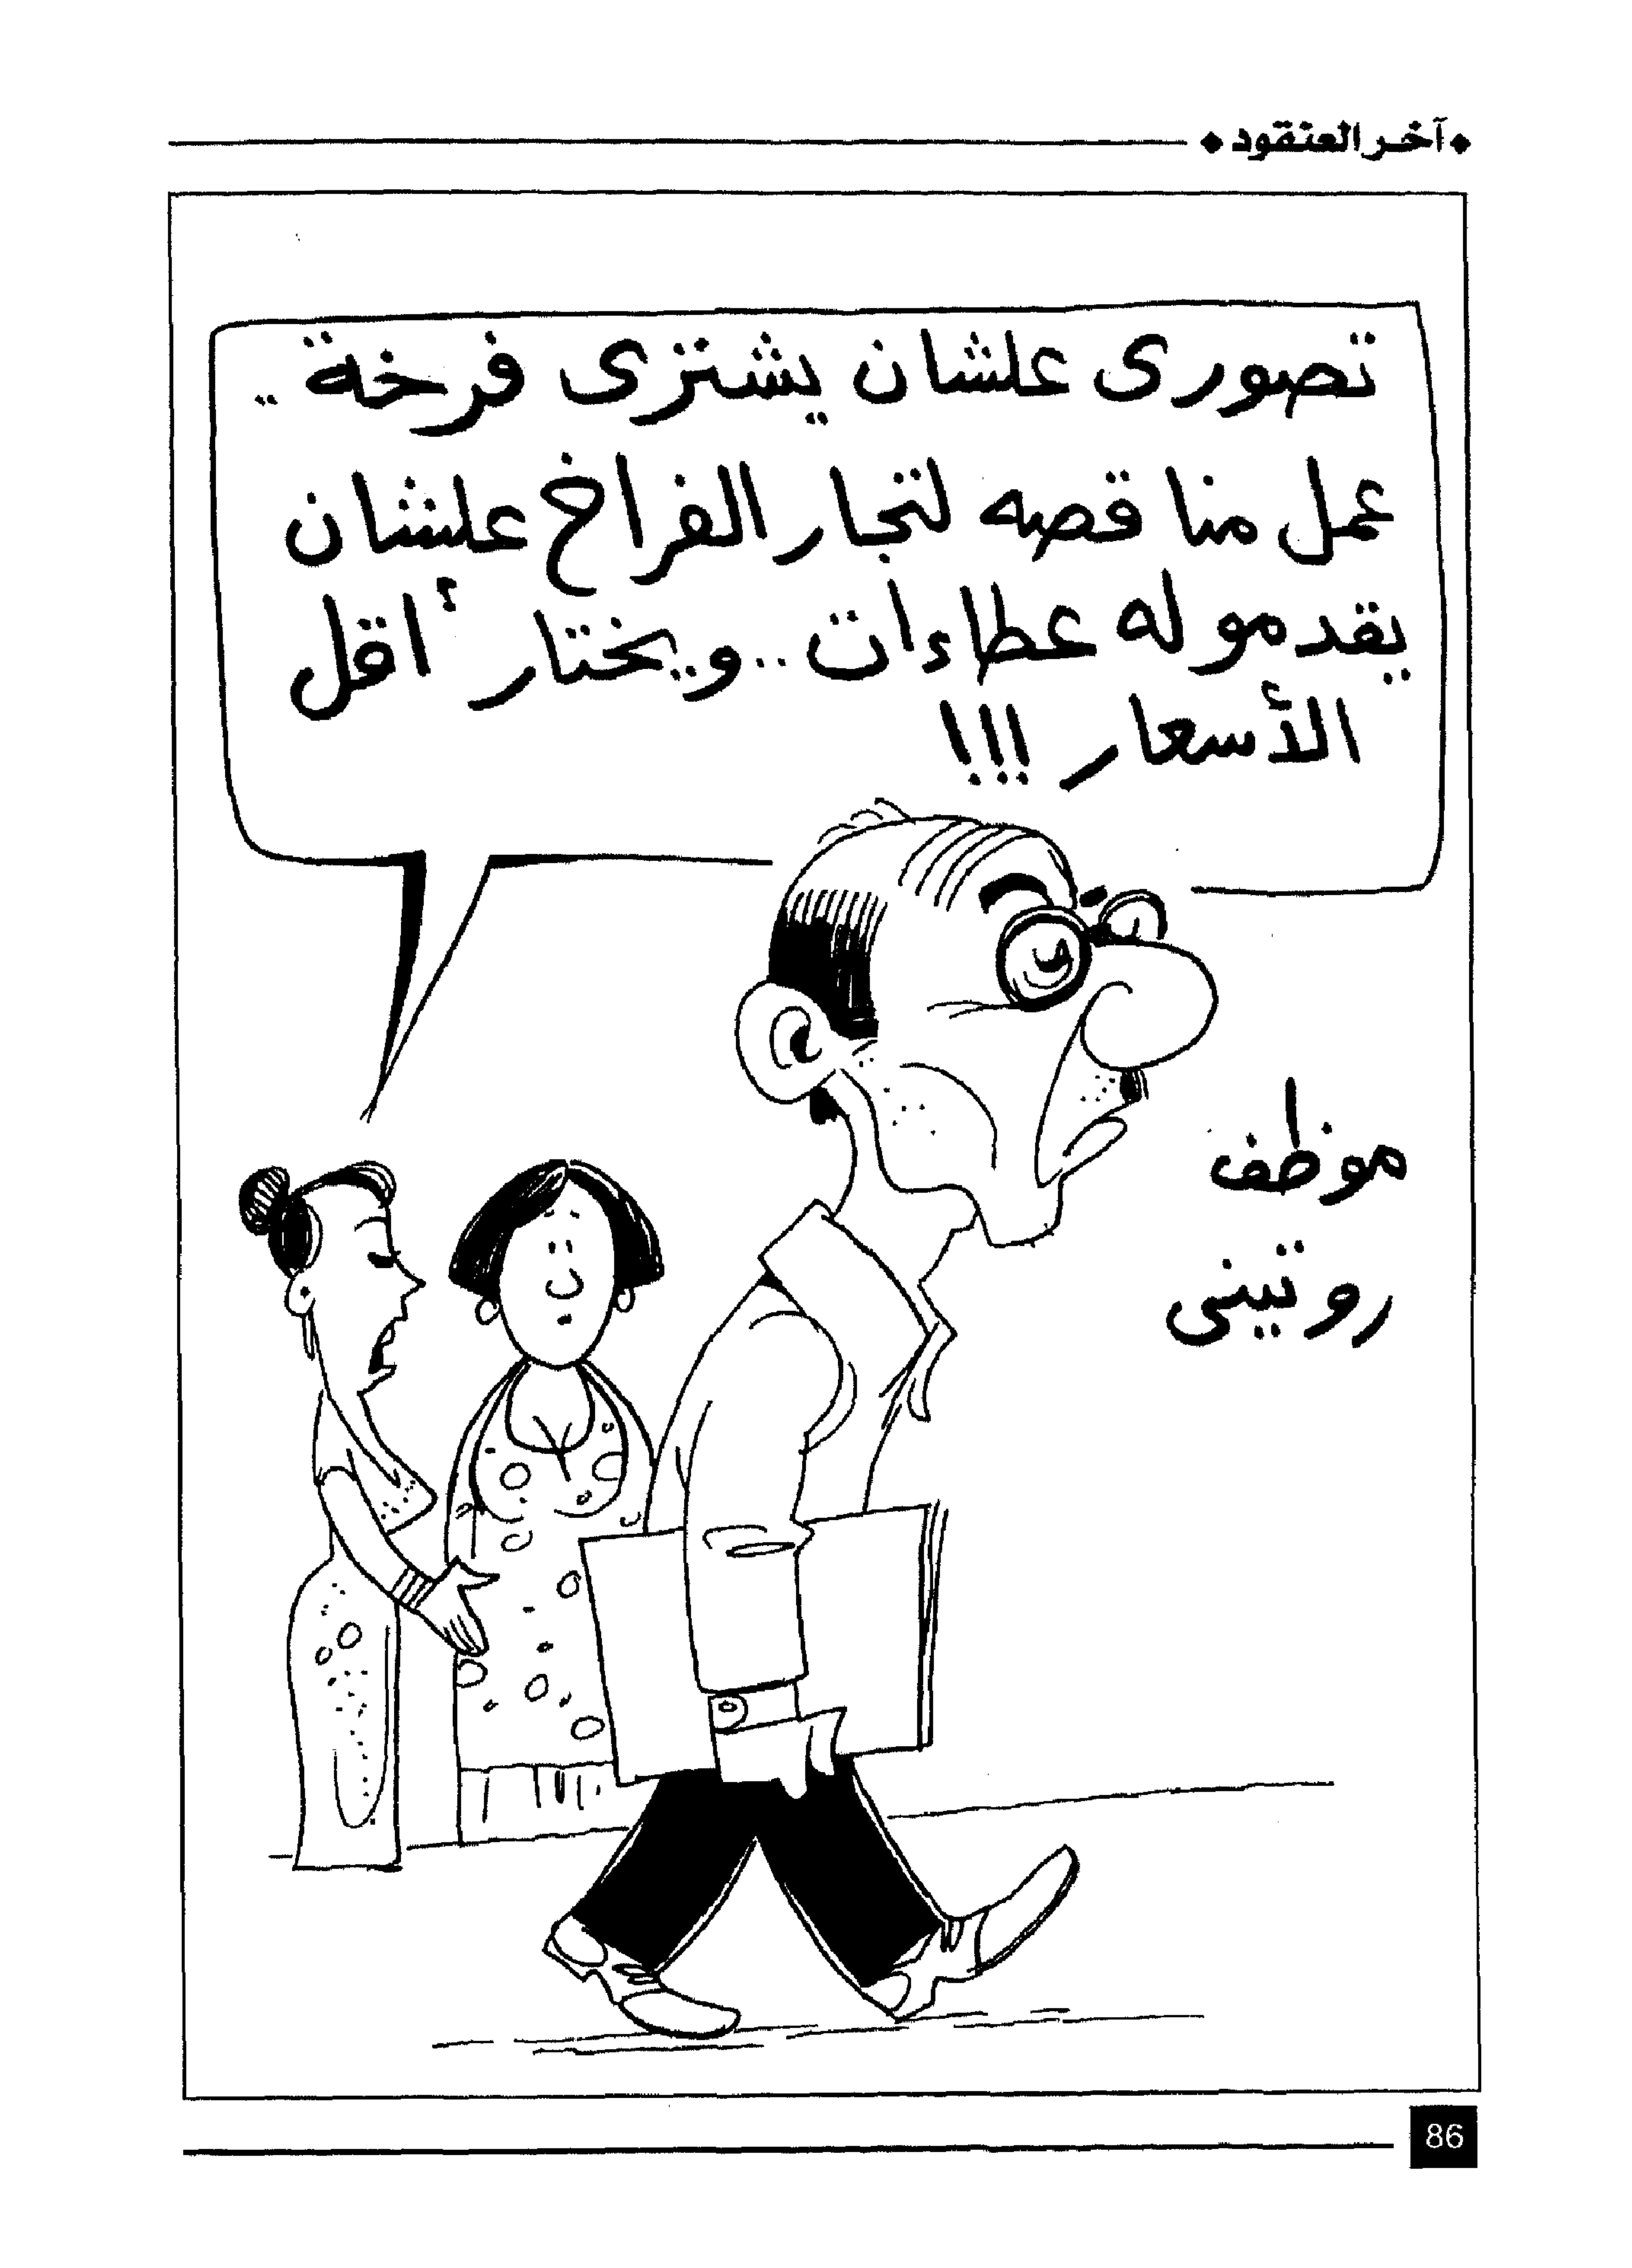 آخر العنقود
تصورى علشان يشترى فرخة ..
عمل مناقصه لتجار الفراخ علشان
يقدموله عطاءات .. ويختار أقل
الأسعار !!!
موظف
روتينى
86